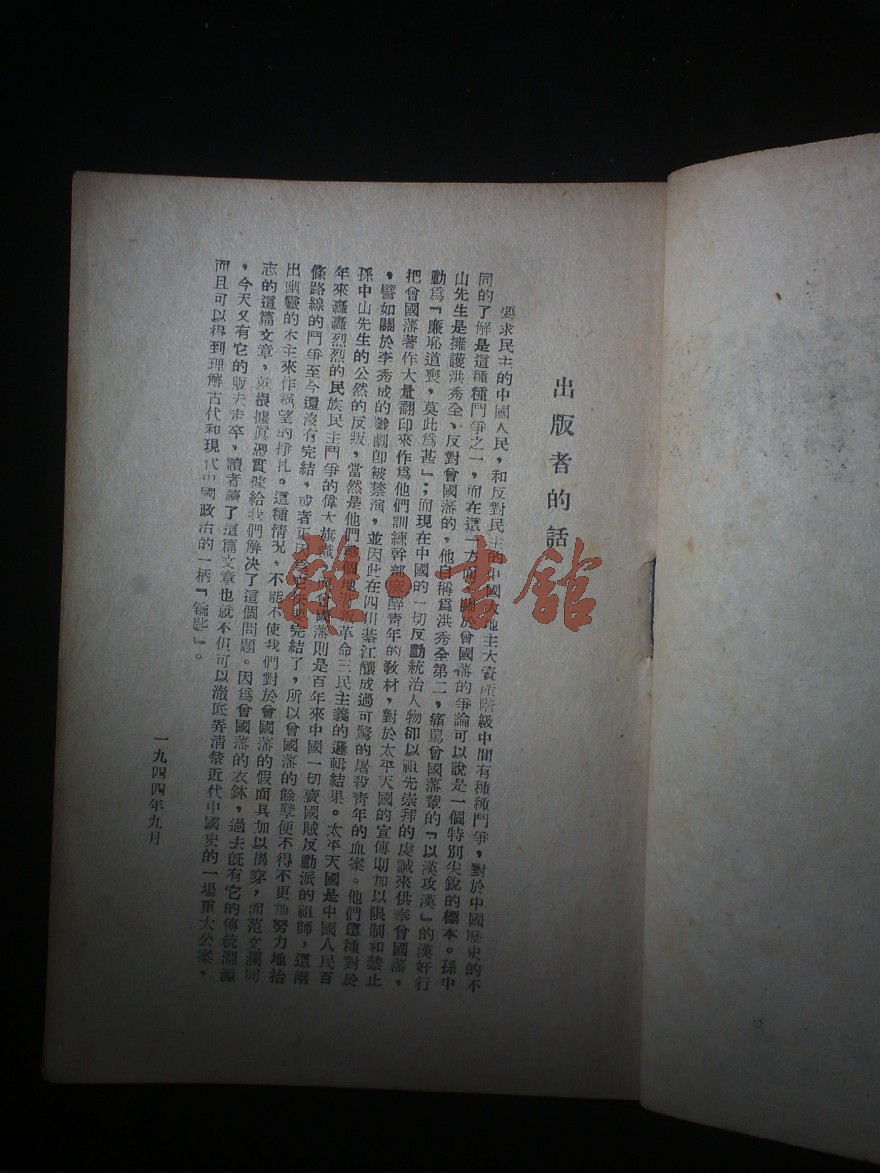 出版者的話
要求民主的中國人民，和反對民主的中國大地主大資產階級中間有種種鬥爭，對於中國歷史的不
同的了解是這種種鬥爭之一，而在這一方面，關於曾國藩的爭論可以說是一個特別尖銳的標本。孫中
山先生是擁護洪秀全、反對曾國藩的，他自稱爲洪秀全第二，痛罵曾國藩輩的「以漢攻漢」的漢奸行
動爲「廉恥道喪，莫此爲甚」；而現在中國的一切反動統治人物卻以祖先崇拜的虔誠來供奉曾國藩，
把曾國藩著作大量翻印來作爲他們訓練幹部麻醉青年的教材，對於太平天國的宣傳則加以限制和禁止
，譬如關於李秀成的戲劇卽被禁演，並因此在四川綦江釀成過可驚的屠殺青年的血案。他們這種對於
孫中山先生的公然的反叛，當然是他們整個地背叛革命三民主義的邏輯結果。太平天國是中國人民百
年來轟轟烈烈的民族民主鬥爭的偉大旗幟，曾國藩則是百年來中國一切賣國賊反動派的祖師，這兩
條路線的鬥爭至今還沒有完結，或者正因爲它快要完結了，所以曾國藩的餘孽便不得不更加努力地抬
出幽靈的木主來作絕望的掙扎。這種情況，不能不使我們對於曾國藩的假面具加以揭穿，而范文瀾同
志的這篇文章，就根據眞憑實據給我們解決了這個問題。因爲曾國藩的衣鉢，過去旣有它的傳統淵源
，今天又有它的販夫走卒，讀者讀了這篇文章也就不但可以澈底弄清楚近代中國史的一場重大公案，
而且可以得到理解古代和現代中國政治的一柄「鑰匙」。
一九四四年九月
雜·書館